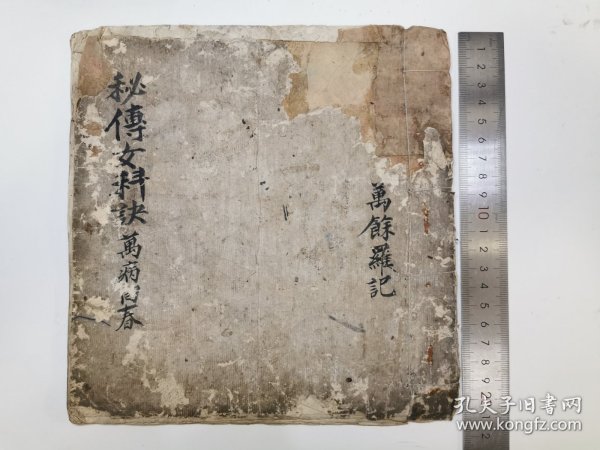 萬餘羅記
秘傳女科訣萬病回春
1 2 3 4 5 6 7 8 9 10 1 2 3 4 5 6 7 8 9 20 1 2
孔夫子旧书网
www.kongfz.com